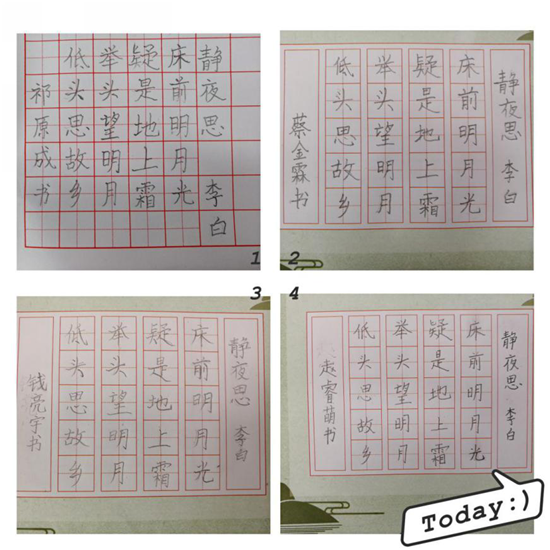 静夜思 李白
床前明月光
疑是地上霜
举头望明月
低头思故乡
祁原成书
1
静夜思 李白
床前明月光
疑是地上霜
举头望明月
低头思故乡
蔡金霖书
2
静夜思 李白
床前明月光
疑是地上霜
举头望明月
低头思故乡
钱亮宇书
3
静夜思 李白
床前明月光
疑是地上霜
举头望明月
低头思故乡
赵睿萌书
4
Today:)